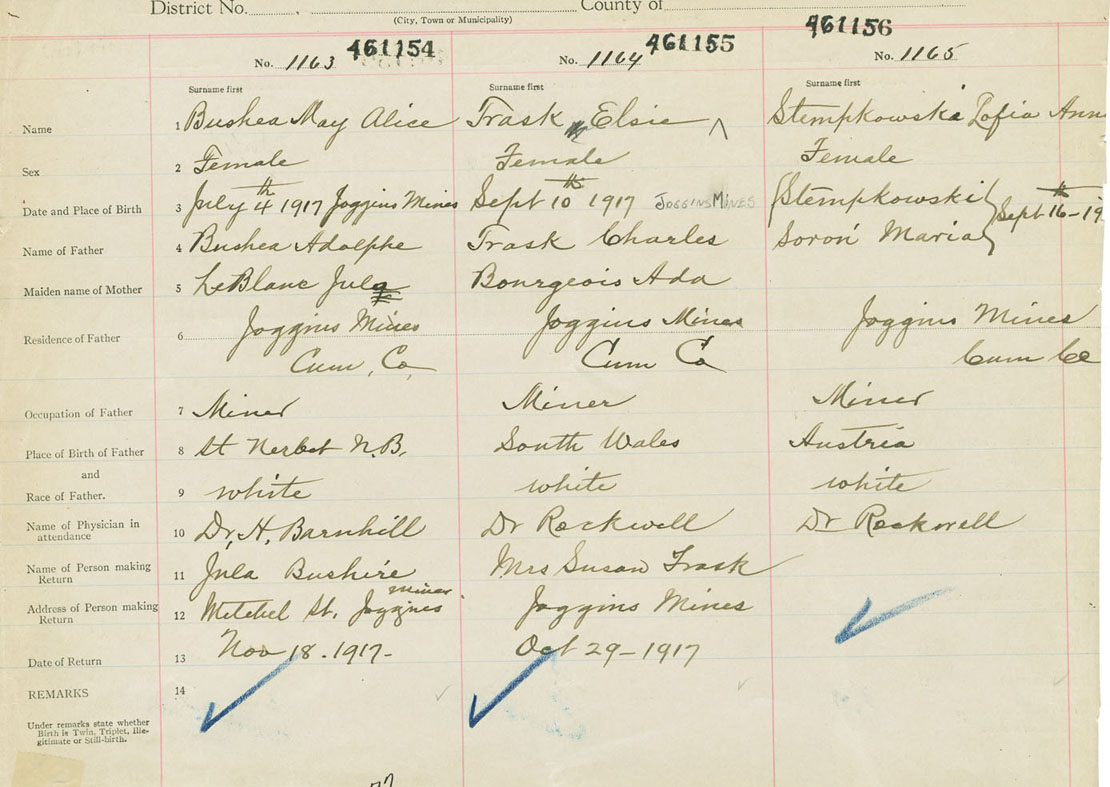 District No. County of
(City, Town or Municipality)
461154 461155 461156
No. 1163 No. 1164 No. 1165
Surname first Surname first Surname first
Name 1 Bushea May Alice Trask Elsie Stempkowski Zofia Ann
Sex 2 Female Female Female
Date and Place of Birth 3 July 4th 1917 Joggins Mines Sept 10th 1917 JOGGINS MINES Stempkowski Sept 16th - 19
Name of Father 4 Bushea Adolphe Trask Charles Soroń Maria
Maiden name of Mother 5 LeBlanc Bourgeois Ada
Residence of Father 6 Joggins Mines Joggins Mines Joggins Mines
Cum. Co. Cum Co Cum Co
Occupation of Father 7 Miner Miner Miner
Place of Birth of Father 8 St N.B. South Wales Austria
and
Race of Father. 9 white white white
Name of Physician in attendance 10 Dr. H. Barnhill Dr Rockwell Dr Rockwell
Name of Person making Return 11 Jula Bushire Mrs Susan Trask
Address of Person making Return 12 Mitchel St. Joggins Mines Joggins Mines
Date of Return 13 Nov 18. 1917- Oct 29-1917
REMARKS 14
Under remarks state whether
Birth is Twin, Triplet, Ille-
gitimate or Still-birth.